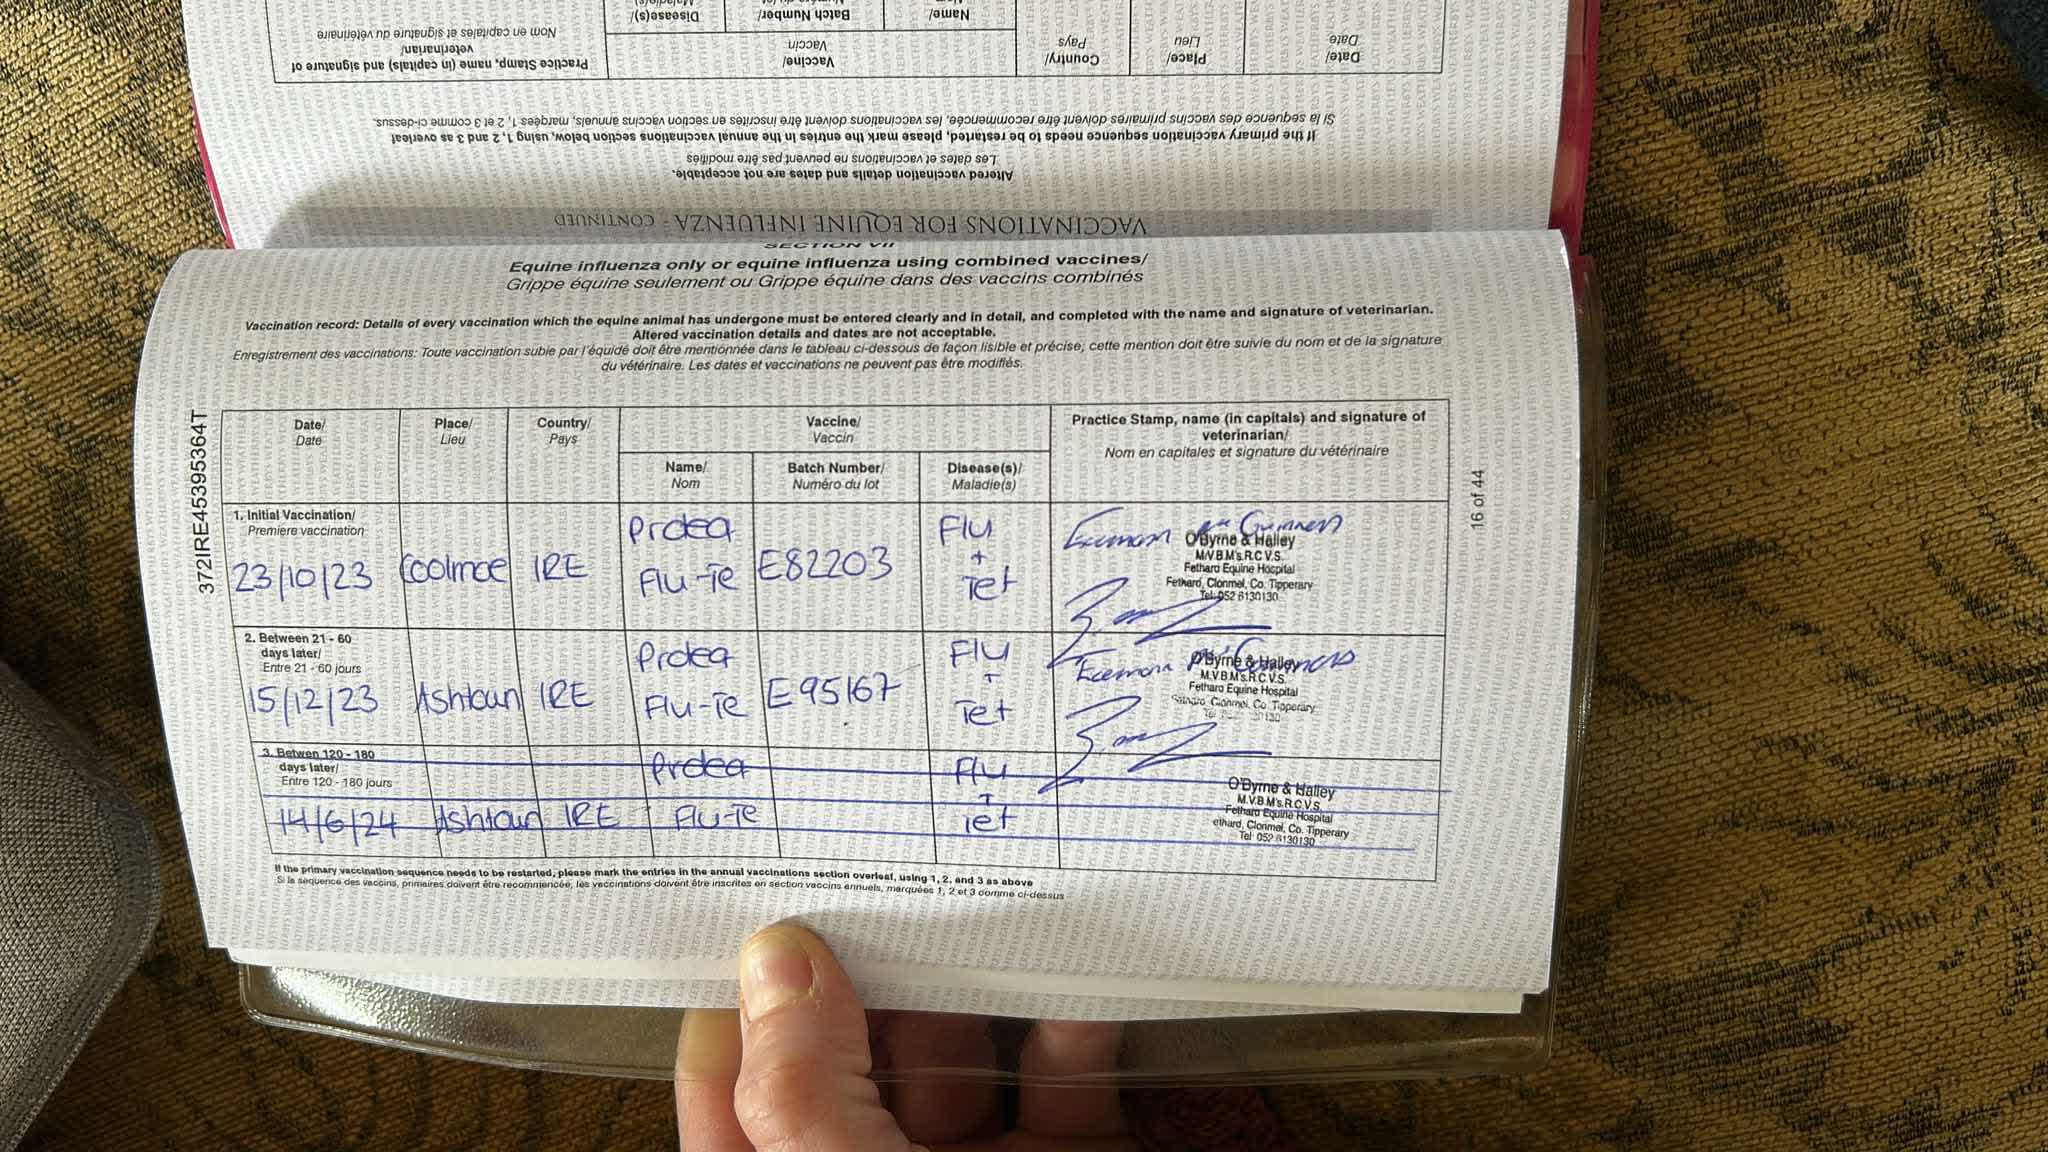 Practice Stamp, name (in capitals) and signature of
veterinarian/
Nom en capitales et signature du vétérinaire
Vaccine/
Vaccin
Name/
Batch Number/
Disease(s)/
Country/
Pays
Place/
Lieu
Date/
Date
Si la séquence des vaccins primaires doivent être recommencée, les vaccinations doivent être inscrites en section vaccins annuels, marqées 1, 2 et 3 comme ci-dessus.
If the primary vaccination sequence needs to be restarted, please mark the entries in the annual vaccinations section below, using 1, 2 and 3 as overleaf
Les dates et vaccinations ne peuvent pas être modifiés
Altered vaccination details and dates are not acceptable.
VACCINATIONS FOR EQUINE INFLUENZA - CONTINUED
SECTION VII
Equine influenza only or equine influenza using combined vaccines/
Grippe équine seulement ou Grippe équine dans des vaccins combinés
Vaccination record: Details of every vaccination which the equine animal has undergone must be entered clearly and in detail, and completed with the name and signature of veterinarian.
Altered vaccination details and dates are not acceptable.
Enregistrement des vaccinations: Toute vaccination subie par l'équidé doit être mentionnée dans le tableau ci-dessous de façon lisible et précise; cette mention doit être suivie du nom et de la signature
du vétérinaire. Les dates et vaccinations ne peuvent pas être modifiés.
372IRE45395364T
16 of 44
Date/
Date
Place/
Lieu
Country/
Pays
Vaccine/
Vaccin
Practice Stamp, name (in capitals) and signature of
veterinarian/
Nom en capitales et signature du vétérinaire
Name/
Nom
Batch Number/
Numéro du lot
Disease(s)/
Maladie(s)
1. Initial Vaccination/
Premiere vaccination
23/10/23
Coolmoe
IRE
Prdea
Flu-Te
E82203
Flu
+
Tet
O'Byrne & Halley
M.V.B.M's.R.C.V.S.
Fethard Equine Hospital
Fethard, Clonmel, Co. Tipperary
Tel: 052 6130130
2. Between 21 - 60
days later/
Entre 21 - 60 jours
15/12/23
Ashtoun
IRE
Prdea
Flu-Te
E95167
Flu
+
Tet
O'Byrne & Halley
M.V.B.M's.R.C.V.S.
Fethard Equine Hospital
Clonmel, Co. Tipperary
3. Betwen 120 - 180
days later/
Entre 120 - 180 jours
14/6/24
Ashtoun
IRE
Prdea
Flu-Te
Flu
+
Tet
O'Byrne & Halley
M.V.B.M's.R.C.V.S.
Fethard Equine Hospital
ethard, Clonmel, Co. Tipperary
Tel: 052 6130130
If the primary vaccination sequence needs to be restarted, please mark the entries in the annual vaccinations section overleaf, using 1, 2, and 3 as above
Si la séquence des vaccins, primaires doivent être recommencée, les vaccinations doivent être inscrites en section vaccins annuels, marquées 1, 2 et 3 comme ci-dessus